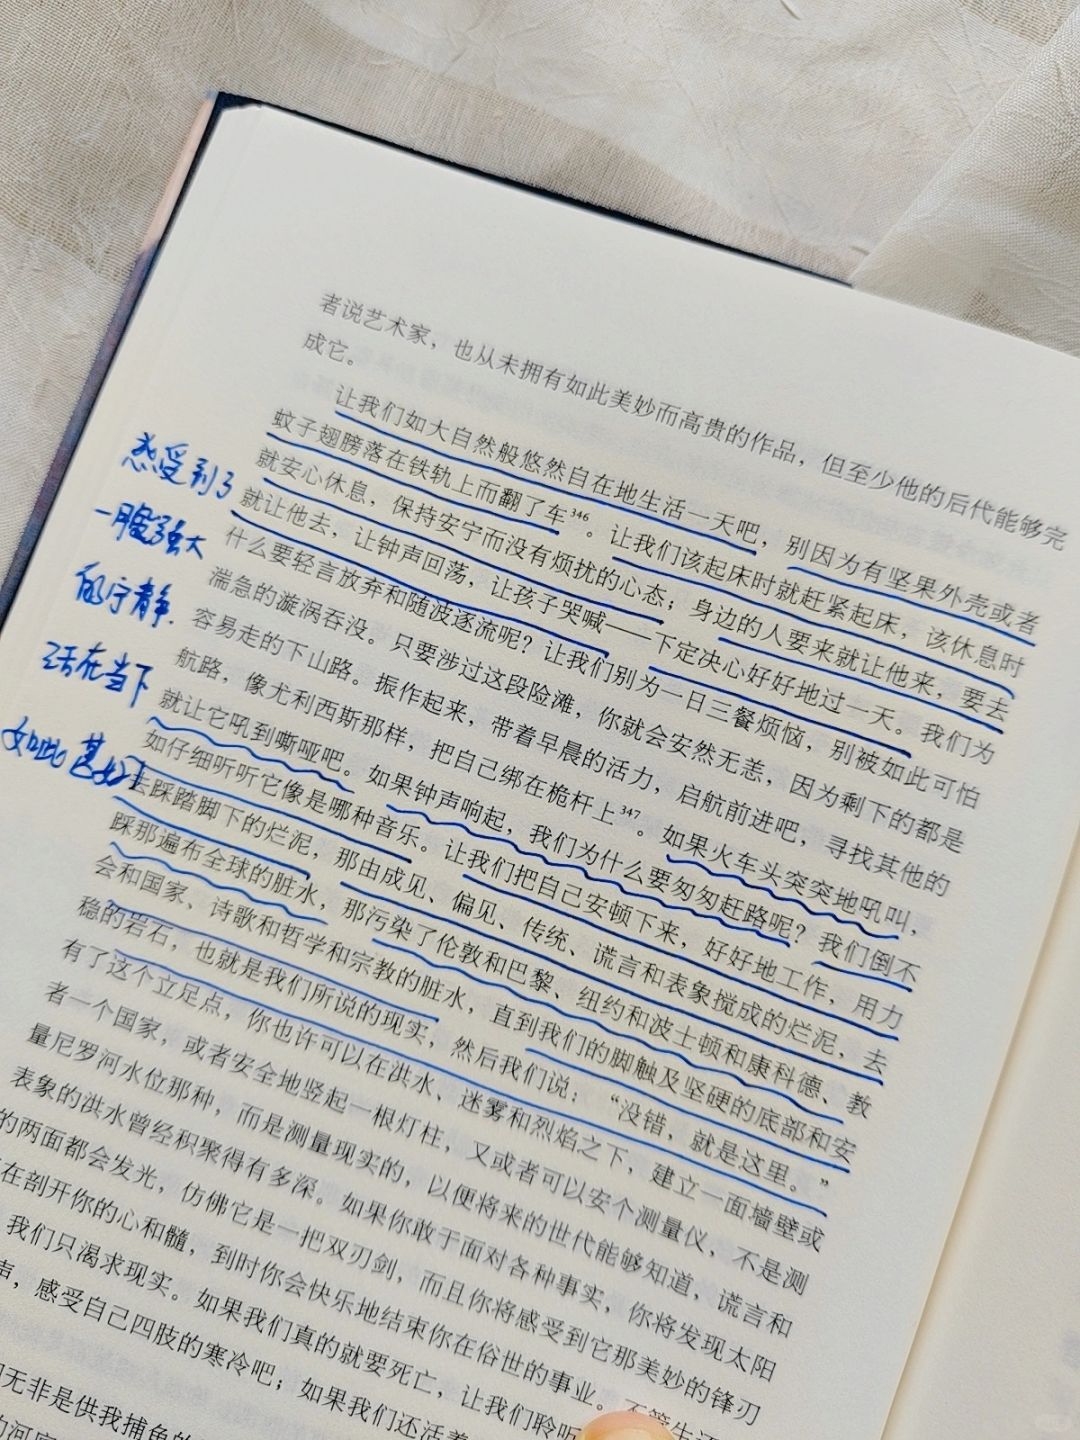 者说艺术家，也从未拥有如此美妙而高贵的作品，但至少他的后代能够完
成它。
让我们如大自然般悠然自在地生活一天吧，别因为有坚果外壳或者
蚊子翅膀落在铁轨上而翻了车346。让我们该起床时就赶紧起床，该休息时
就安心休息，保持安宁而没有烦扰的心态；身边的人要来就让他来，要去
就让他去，让钟声回荡，让孩子哭喊——下定决心好好地过一天。我们为
什么要轻言放弃和随波逐流呢？让我们别为一日三餐烦恼，别被如此可怕
湍急的漩涡吞没。只要涉过这段险滩，你就会安然无恙，因为剩下的都是
容易走的下山路。振作起来，带着早晨的活力，启航前进吧，寻找其他的
航路，像尤利西斯那样，把自己绑在桅杆上347。如果火车头突突地吼叫，
就让它吼到嘶哑吧。如果钟声响起，我们为什么要匆匆赶路呢？我们倒不
如仔细听听它像是哪种音乐。让我们把自己安顿下来，好好地工作，用力
去踩踏脚下的烂泥，那由成见、偏见、传统、谎言和表象搅成的烂泥，去
踩那遍布全球的脏水，那污染了伦敦和巴黎、纽约和波士顿和康科德、教
会和国家、诗歌和哲学和宗教的脏水，直到我们的脚触及坚硬的底部和安
稳的岩石，也就是我们所说的现实，然后我们说：“没错，就是这里。”
有了这个立足点，你也许可以在洪水、迷雾和烈焰之下，建立一面墙壁或
者一个国家，或者安全地竖起一根灯柱，又或者可以安个测量仪，不是测
量尼罗河水位那种，而是测量现实的，以便将来的世代能够知道，谎言和
表象的洪水曾经积聚得有多深。如果你敢于面对各种事实，你将发现太阳
的两面都会发光，仿佛它是一把双刃剑，而且你将感受到它那美妙的锋刃
在剖开你的心和髓，到时你会快乐地结束你在俗世的事业。不管生
我们只渴求现实。如果我们真的就要死亡，让我们聆听
声，感受自己四肢的寒冷吧；如果我们还活着
无非是供我捕鱼的
感受到了
一股强大
的宁静.
活在当下
如此甚好！